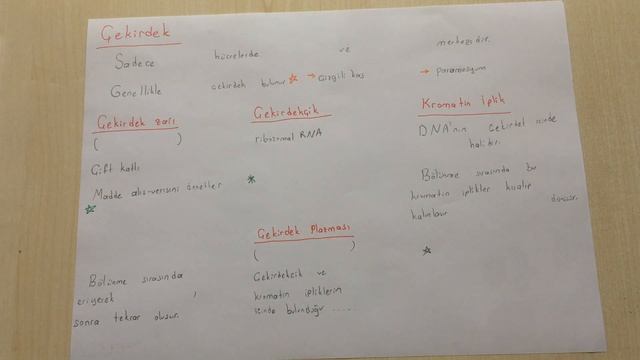 Çekirdek
Sadece hücrelerde ve merkezidir.
Genellikle çekirdek bulunur ☆ → Çizgili kas → Paramesyum
Çekirdek zarı
( )
Çift katlı
Madde alış-verişini denetler
☆
Bölünme sırasında
eriyerek ,
sonra tekrar oluşur.
Çekirdekçik
ribozomal RNA
*
Çekirdek Plazması
( )
Çekirdekçik ve
kromatin ipliklerin
içinde bulunduğu .....
Kromatin İplik
DNA'nın çekirdek içinde
halidir.
Bölünme sırasında bu
kromatin iplikler kısalıp
kalınlaşır dönüşür.
☆